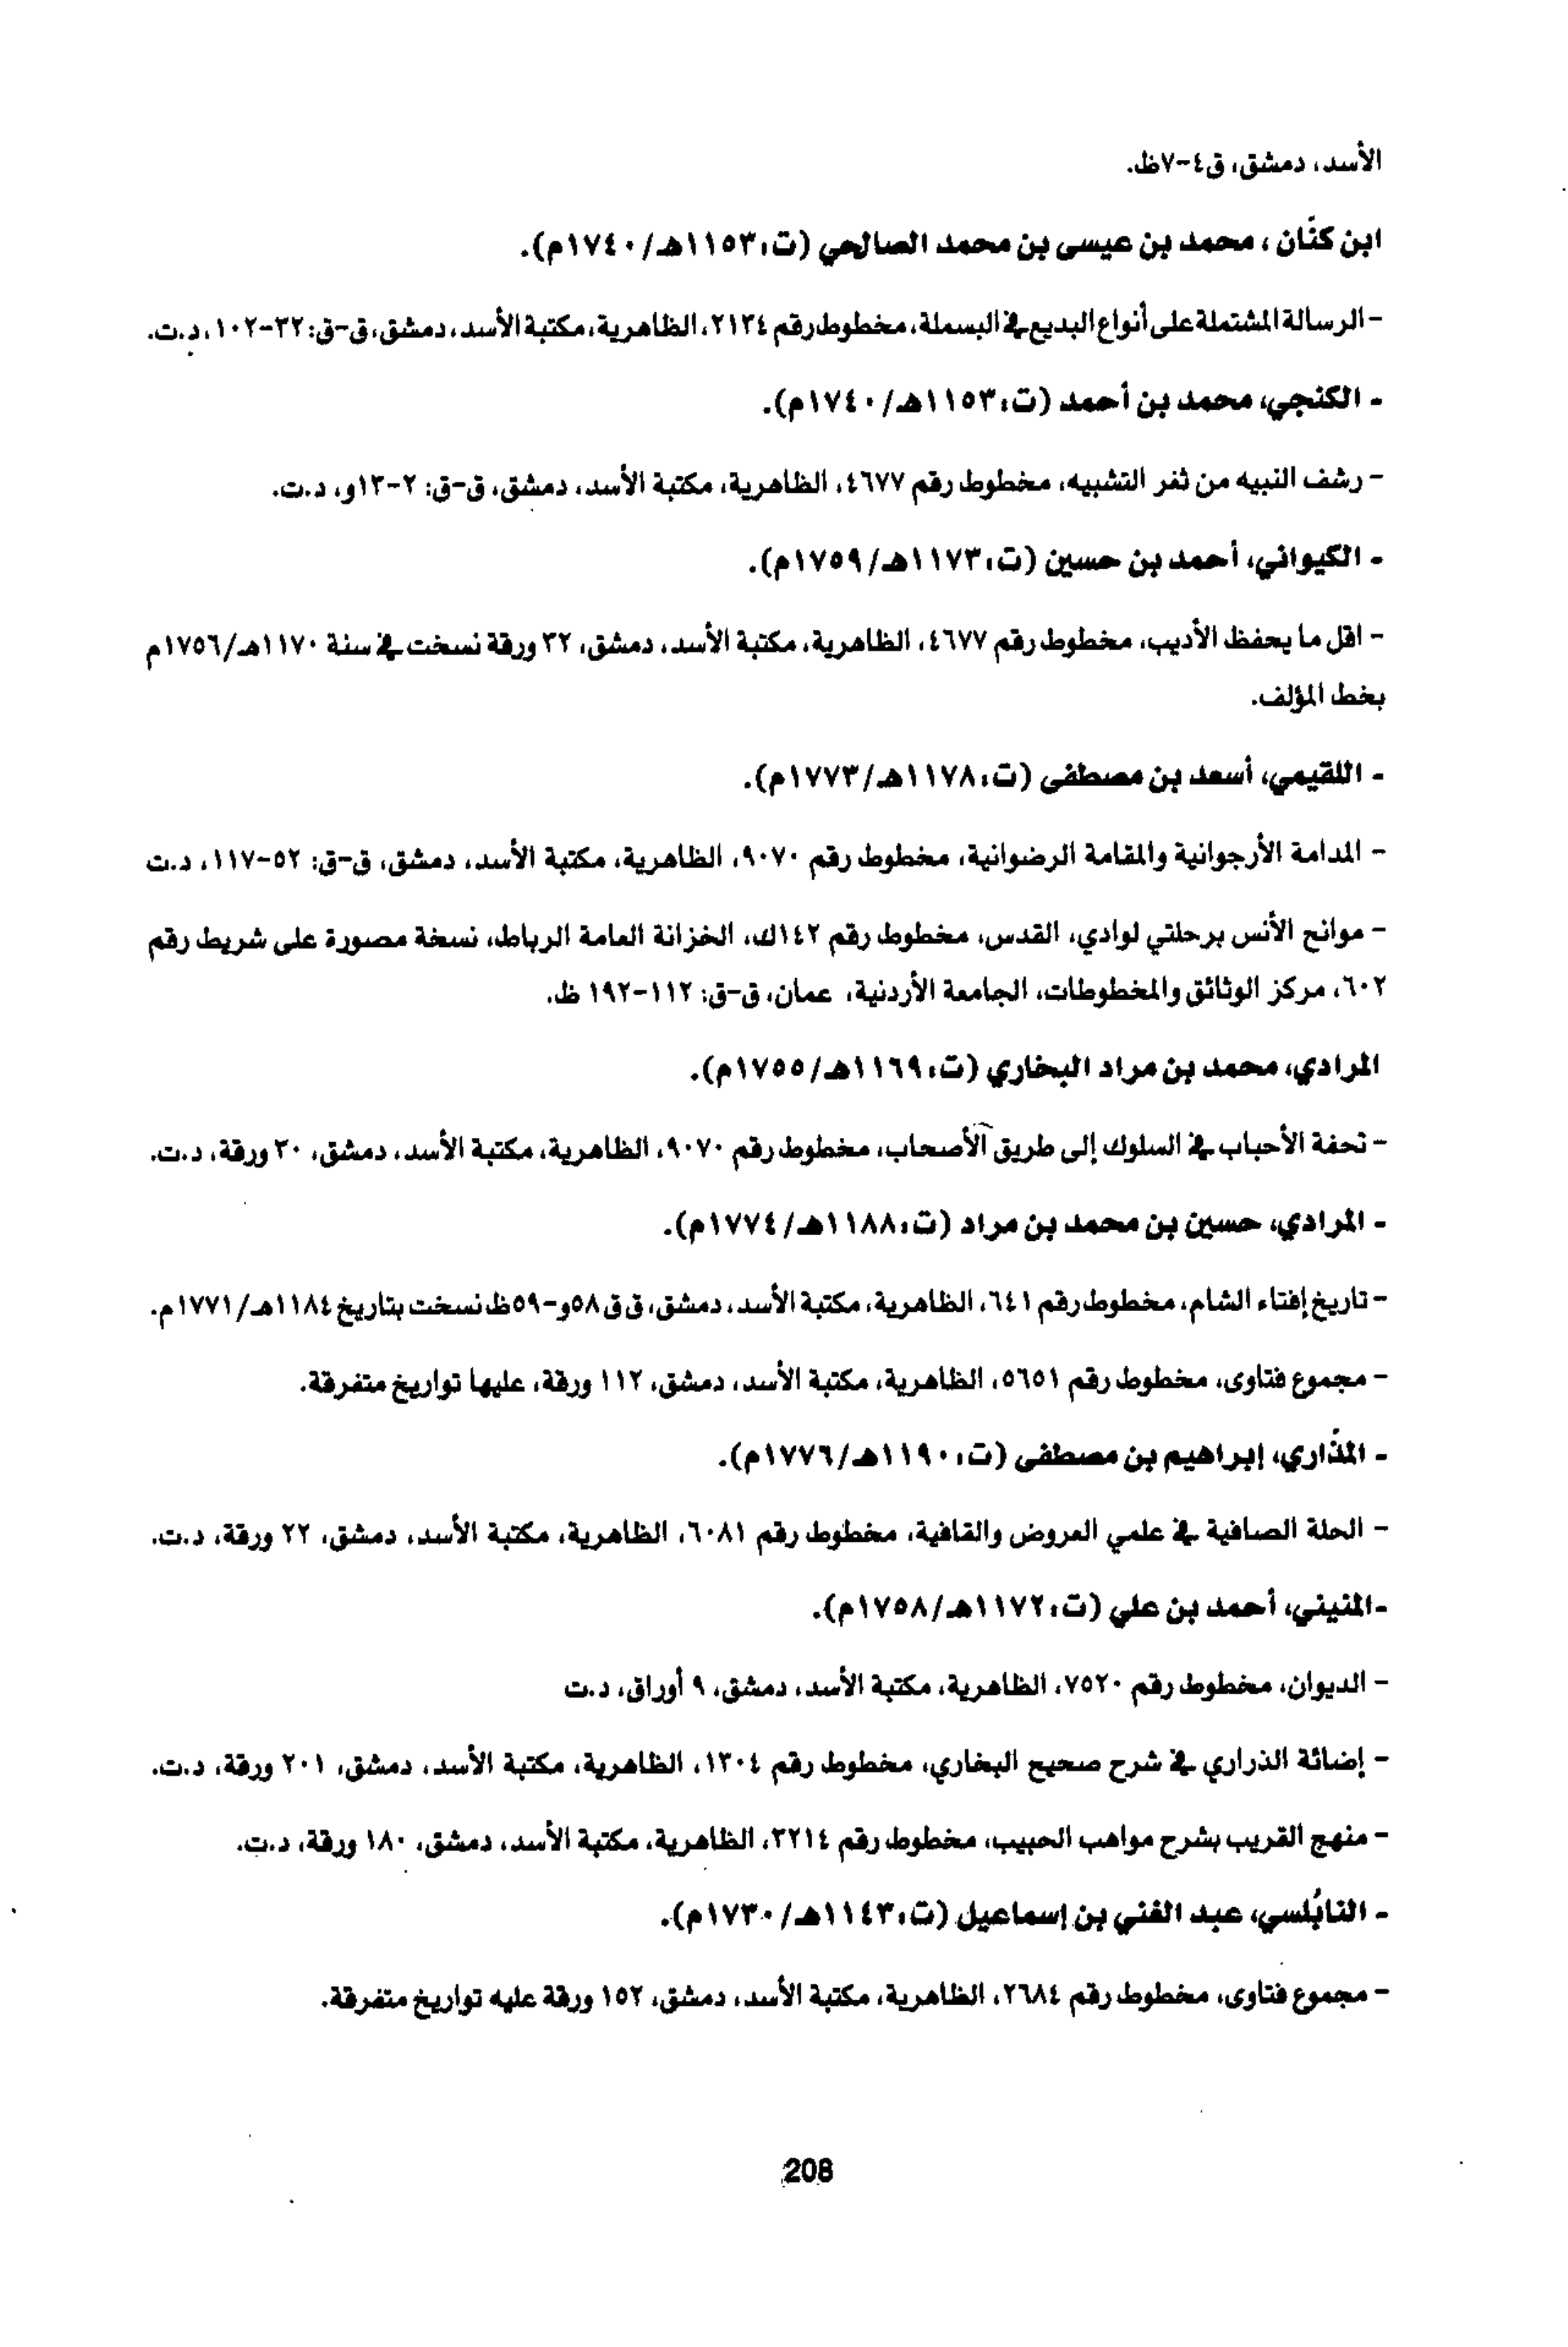 الأسد، دمشق، ق٤-٧ظ.
ابن كنّان ، محمد بن عيسى بن محمد الصالحي (ت:١١٥٣هـ/١٧٤٠م).
- الرسالة المشتملة على أنواع البديع في البسملة، مخطوط رقم ٢١٣٤، الظاهرية، مكتبة الأسد، دمشق، ق-ق: ٣٢-١٠٢، د.ت.
- الكنجي، محمد بن أحمد (ت:١١٥٣هـ/١٧٤٠م).
- رشف النبيه من ثغر التشبيه، مخطوط رقم ٤٦٧٧، الظاهرية، مكتبة الأسد، دمشق، ق-ق: ٢-١٣و، د.ت.
- الكيواني، أحمد بن حسين (ت:١١٧٣هـ/١٧٥٩م).
- اقل ما يحفظ الأديب، مخطوط رقم ٤٦٧٧، الظاهرية، مكتبة الأسد، دمشق، ٣٢ ورقة نسخت في سنة ١١٧٠هـ/١٧٥٦م
بخط المؤلف.
- اللقيمي، أسعد بن مصطفى (ت:١١٧٨هـ/١٧٧٣م).
- المدامة الأرجوانية والمقامة الرضوانية، مخطوط رقم ٩٠٧٠، الظاهرية، مكتبة الأسد، دمشق، ق-ق: ٥٢-١١٧، د.ت
- موانح الأنس برحلتي لوادي، القدس، مخطوط رقم ١٤٢ك، الخزانة العامة الرباط، نسخة مصورة على شريط رقم
٦٠٢، مركز الوثائق والمخطوطات، الجامعة الأردنية، عمان، ق-ق: ١١٢-١٩٢ ظ.
المرادي، محمد بن مراد البخاري (ت:١١٦٩هـ/١٧٥٥م).
- تحفة الأحباب في السلوك إلى طريق الأصحاب، مخطوط رقم ٩٠٧٠، الظاهرية، مكتبة الأسد، دمشق، ٣٠ ورقة، د.ت.
- المرادي، حسين بن محمد بن مراد (ت:١١٨٨هـ/١٧٧٤م).
- تاريخ إفتاء الشام، مخطوط رقم ٦٤١، الظاهرية، مكتبة الأسد، دمشق، ق ق ٥٨و-٥٩ظ نسخت بتاريخ ١١٨٤هـ/١٧٧١م.
- مجموع فتاوى، مخطوط رقم ٥٦٥١، الظاهرية، مكتبة الأسد، دمشق، ١١٢ ورقة، عليها تواريخ متفرقة.
- المذّاري، إبراهيم بن مصطفى (ت:١١٩٠هـ/١٧٧٦م).
- الحلة الصافية في علمي العروض والقافية، مخطوط رقم ٦٠٨١، الظاهرية، مكتبة الأسد، دمشق، ٢٢ ورقة، د.ت.
-المنيني، أحمد بن علي (ت:١١٧٢هـ/١٧٥٨م).
- الديوان، مخطوط رقم ٧٥٢٠، الظاهرية، مكتبة الأسد، دمشق، ٩ أوراق، د.ت
- إضائة الذراري في شرح صحيح البخاري، مخطوط رقم ١٣٠٤، الظاهرية، مكتبة الأسد، دمشق، ٢٠١ ورقة، د.ت.
- منهج القريب بشرح مواهب الحبيب، مخطوط رقم ٣٢١٤، الظاهرية، مكتبة الأسد، دمشق، ١٨٠ ورقة، د.ت.
- النابُلسي، عبد الغني بن إسماعيل (ت:١١٤٣هـ/١٧٣٠م).
- مجموع فتاوى، مخطوط رقم ٢٦٨٤، الظاهرية، مكتبة الأسد، دمشق، ١٥٢ ورقة عليه تواريخ متفرقة.
208